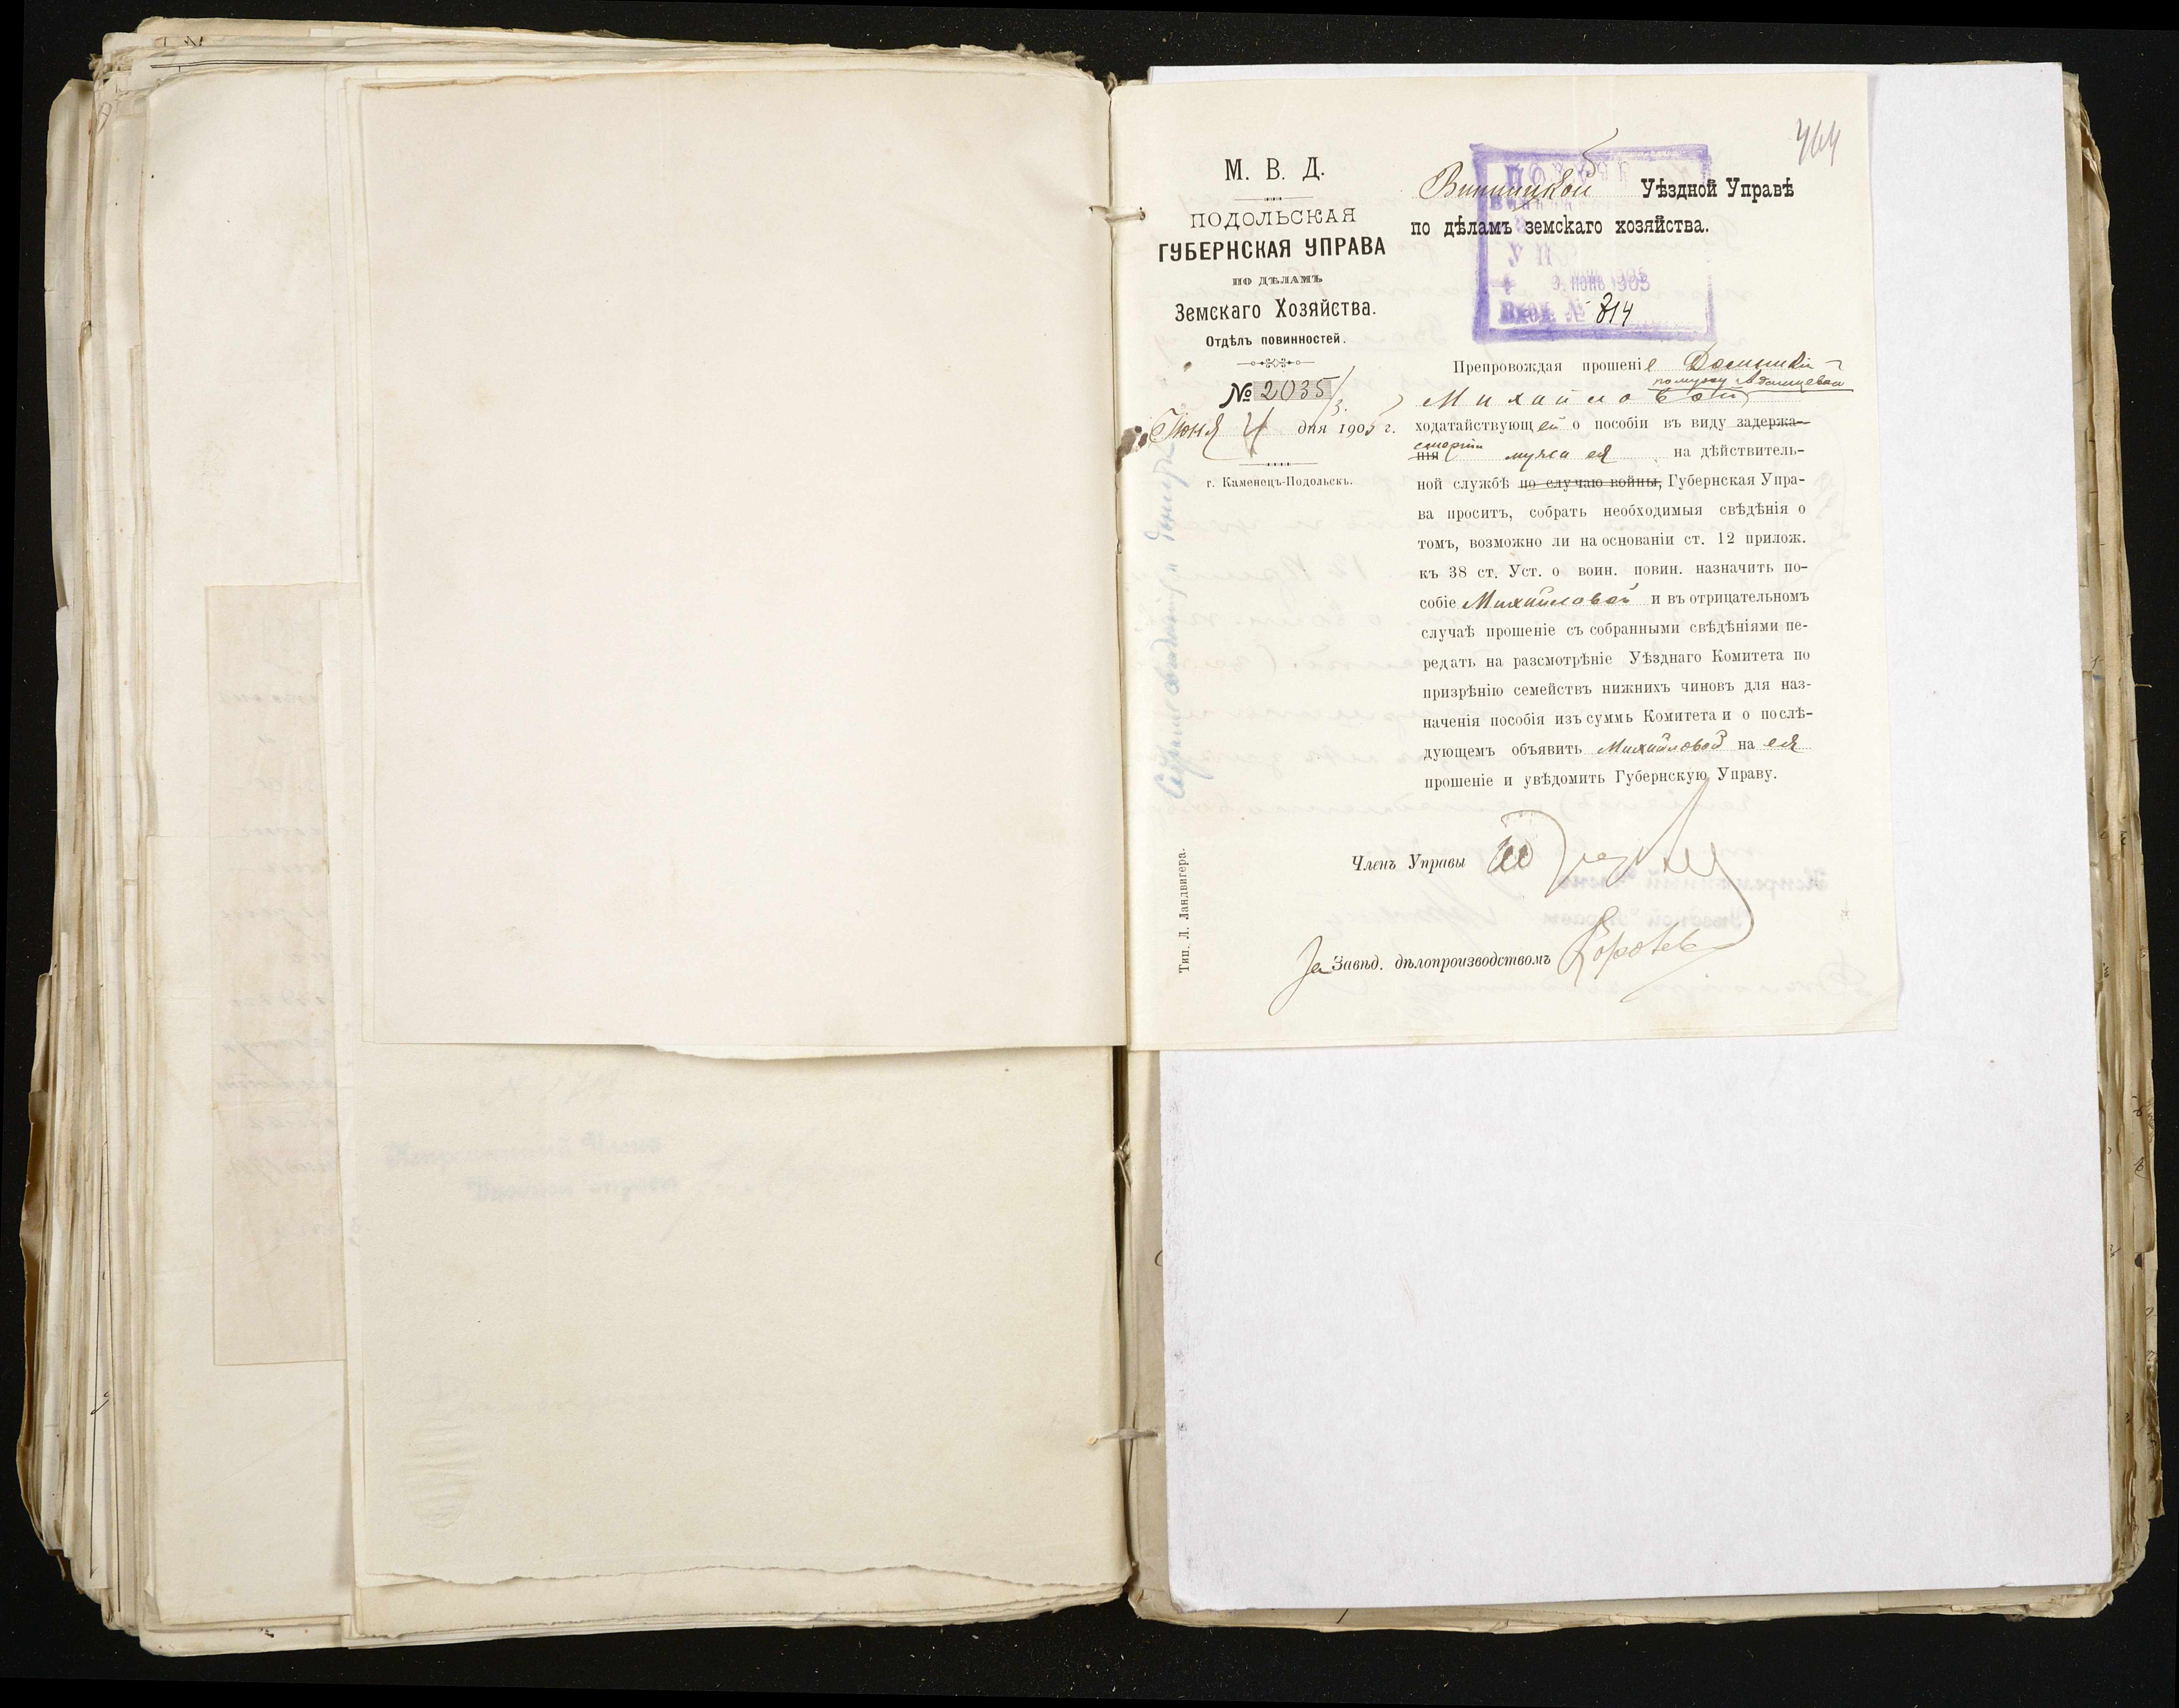 464
М. В. Д.
ПОДОЛЬСКАЯ
ГУБЕРНСКАЯ УПРАВА
ПО ДѢЛАМЪ
Земскаго Хозяйства.
Отдѣлъ повинностей.
№ 2035/3.
Іюня 4 дня 1905 г.
г. Каменецъ-Подольскъ.
Тип. Л. Ландвигера.
Винницкой Уѣздной Управѣ
по дѣламъ земскаго хозяйства.
ІЮНЬ 1905
Вход. № 814
Препровождая прошеніе Домникіи
по мужу
Михайловой
ходатайствующей о пособіи въ виду задержа-
смерти
нія мужа ея на дѣйствитель-
ной службѣ по случаю войны, Губернская Упра-
ва проситъ, собрать необходимыя свѣдѣнія о
томъ, возможно ли на основаніи ст. 12 прилож.
къ 38 ст. Уст. о воин. повин. назначить по-
собіе Михайловой и въ отрицательномъ
случаѣ прошеніе съ собранными свѣдѣніями пе-
редать на разсмотрѣніе Уѣзднаго Комитета по
призрѣнію семействъ нижнихъ чиновъ для наз-
наченія пособія изъ суммъ Комитета и о послѣ-
дующемъ объявить Михайловой на ея
прошеніе и увѣдомить Губернскую Управу.
Членъ Управы
За Завѣд. дѣлопроизводствомъ